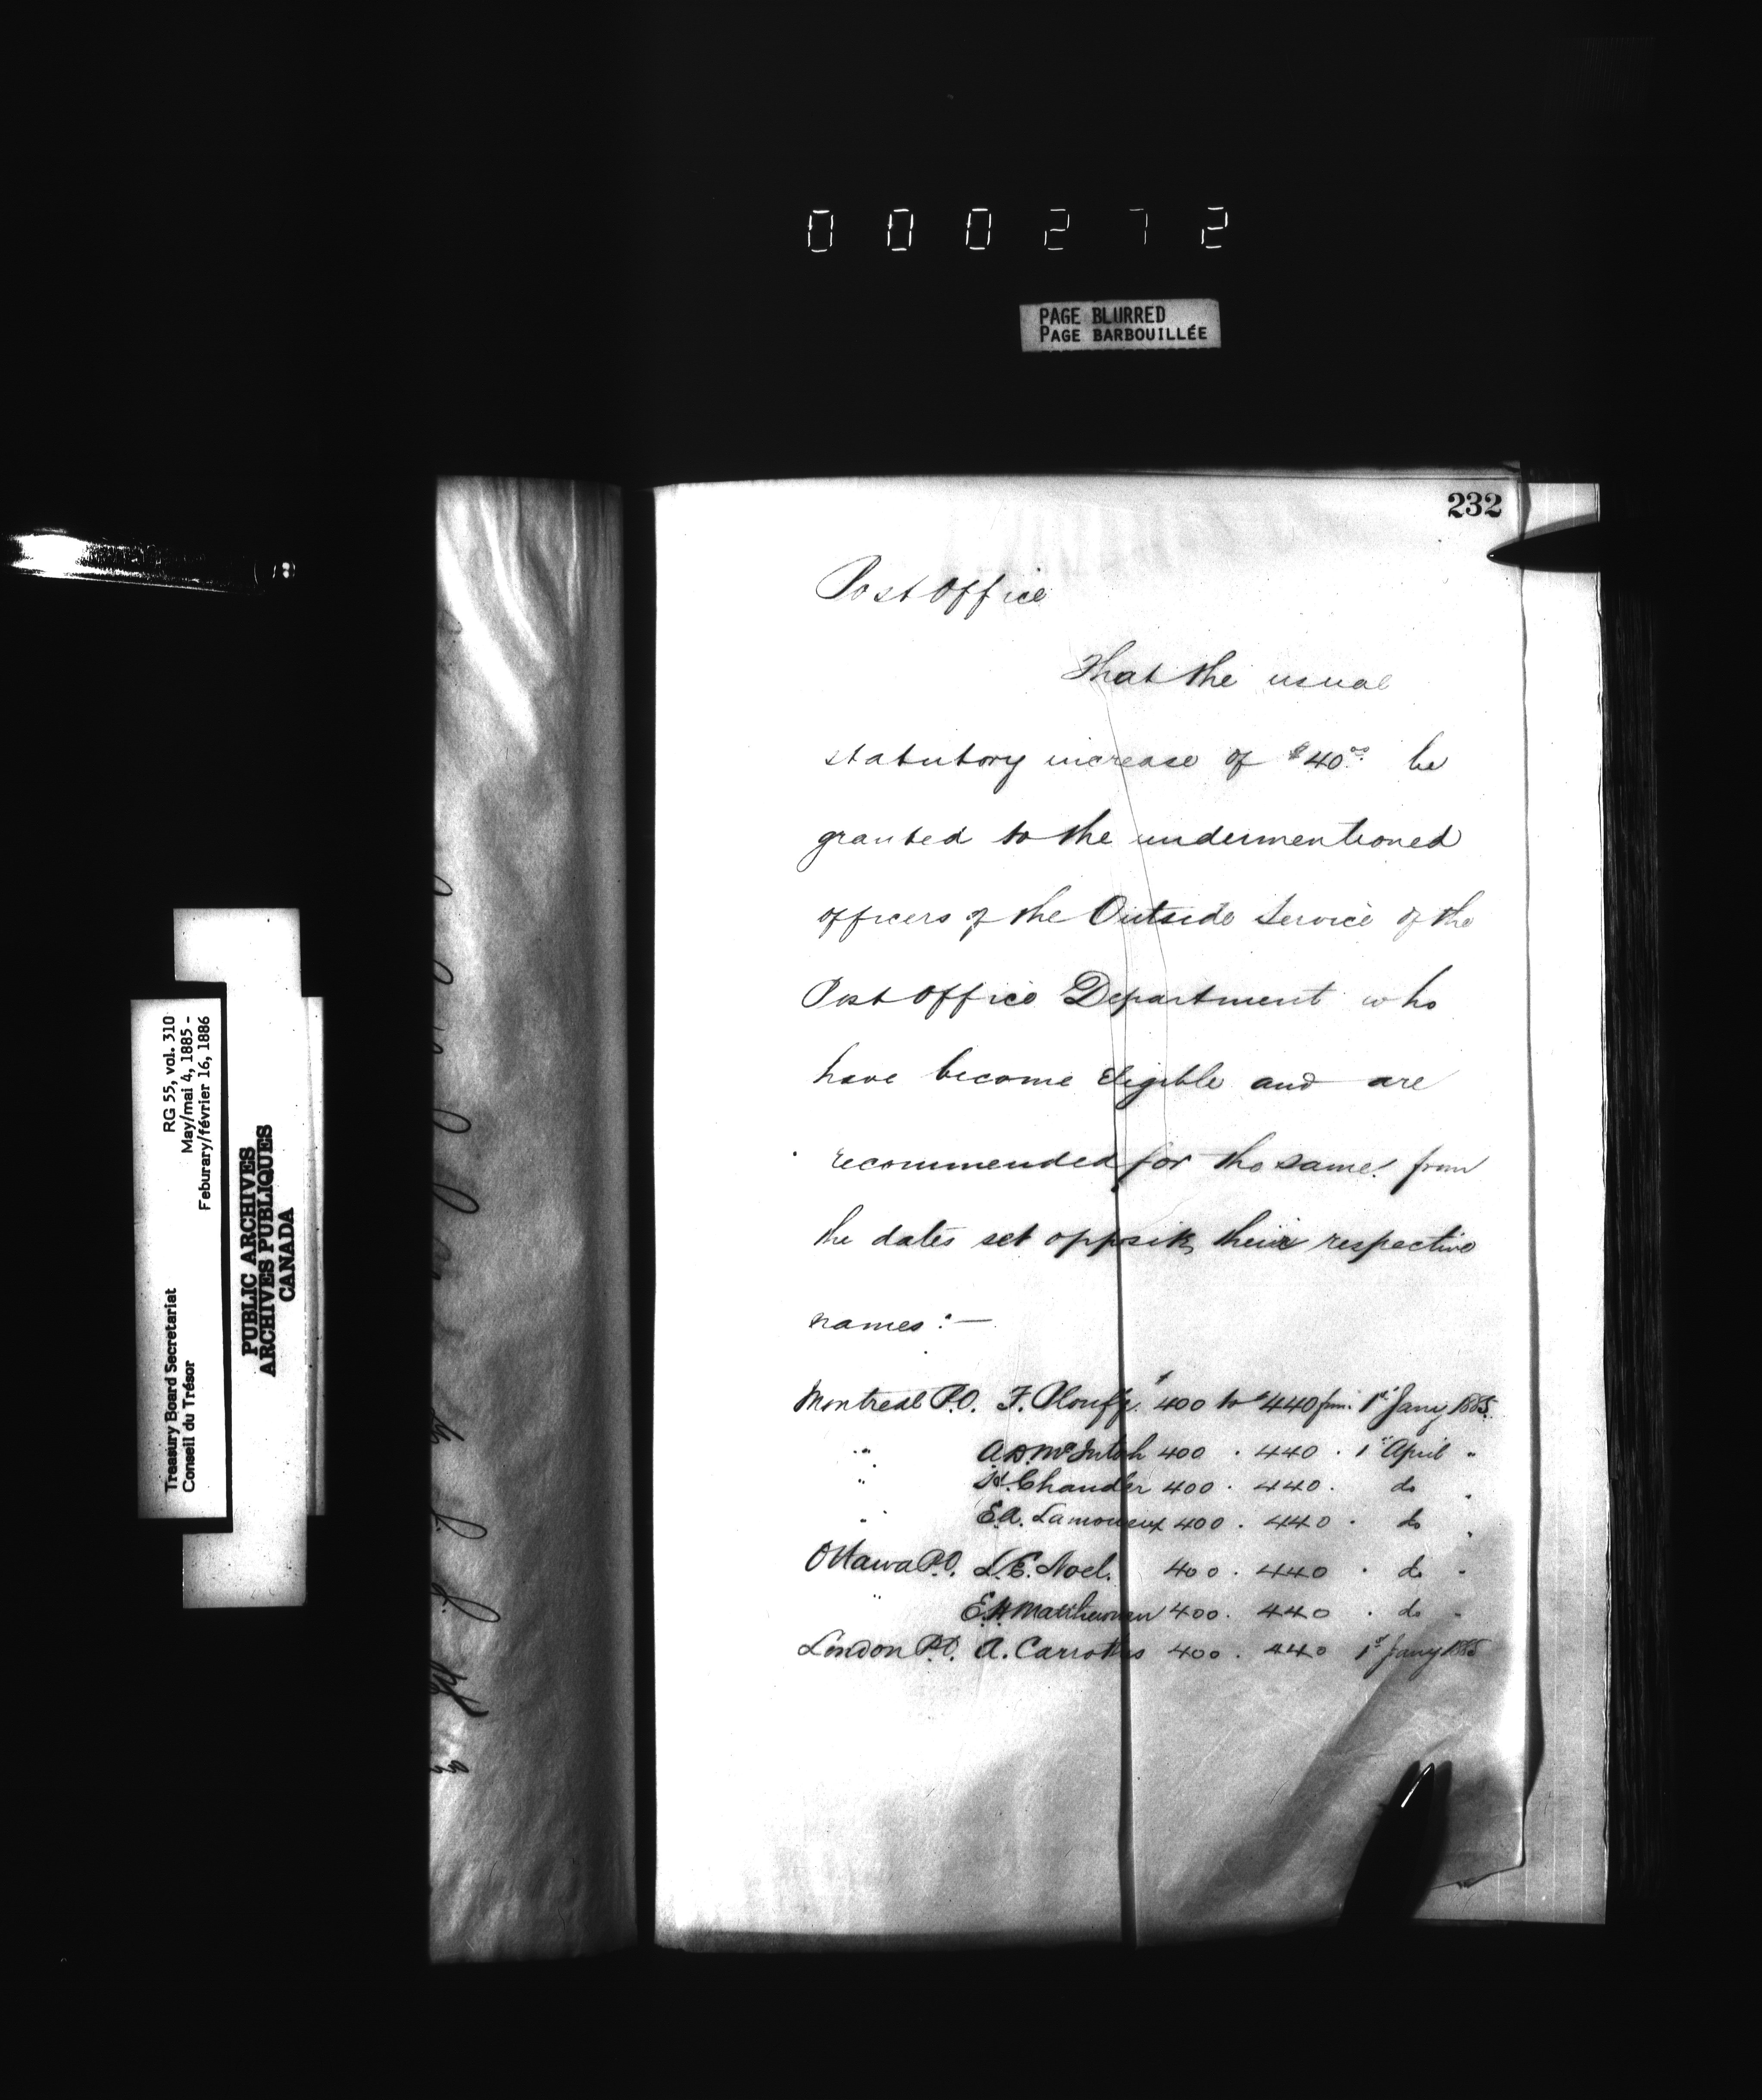 000272
PAGE BLURRED
PAGE BARBOUILLÉE
232
Post Office
That the usual
statutory increase of $40.00 be
granted to the undermentioned
officers of the Outside Service of the
Post Office Department who
have become eligible and are
recommended for the same from
the dates set opposite their respective
names :—
Montreal P.O. F. Plouffe $400 to $440 from 1st Jany 1885
" A.D. McIntosh 400 . 440 . 1st April "
" H. Chandler 400 . 440 . do "
" E.A. Lamoureux 400 . 440 . do "
Ottawa P.O. L.E. Noel. 400 . 440 . do "
" E.H. Matthewman 400 . 440 . do "
London P.O. A. Carrothers 400 . 440 1st Jany 1885
RG 55, vol. 310
May/mai 4, 1885 -
Feburary/février 16, 1886
Treasury Board Secretariat
Conseil du Trésor
PUBLIC ARCHIVES
ARCHIVES PUBLIQUES
CANADA